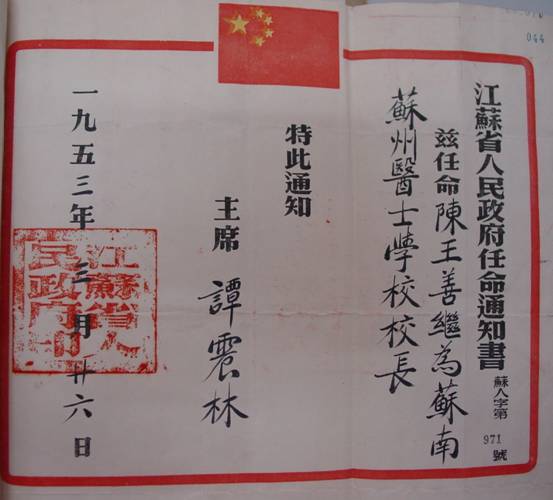 江蘇省人民政府任命通知書
蘇人字第971號
兹任命陳王善繼為蘇南
蘇州醫士學校校長
特此通知
主席 譚震林
一九五三年三月廿六日
江蘇省人民政府印
044